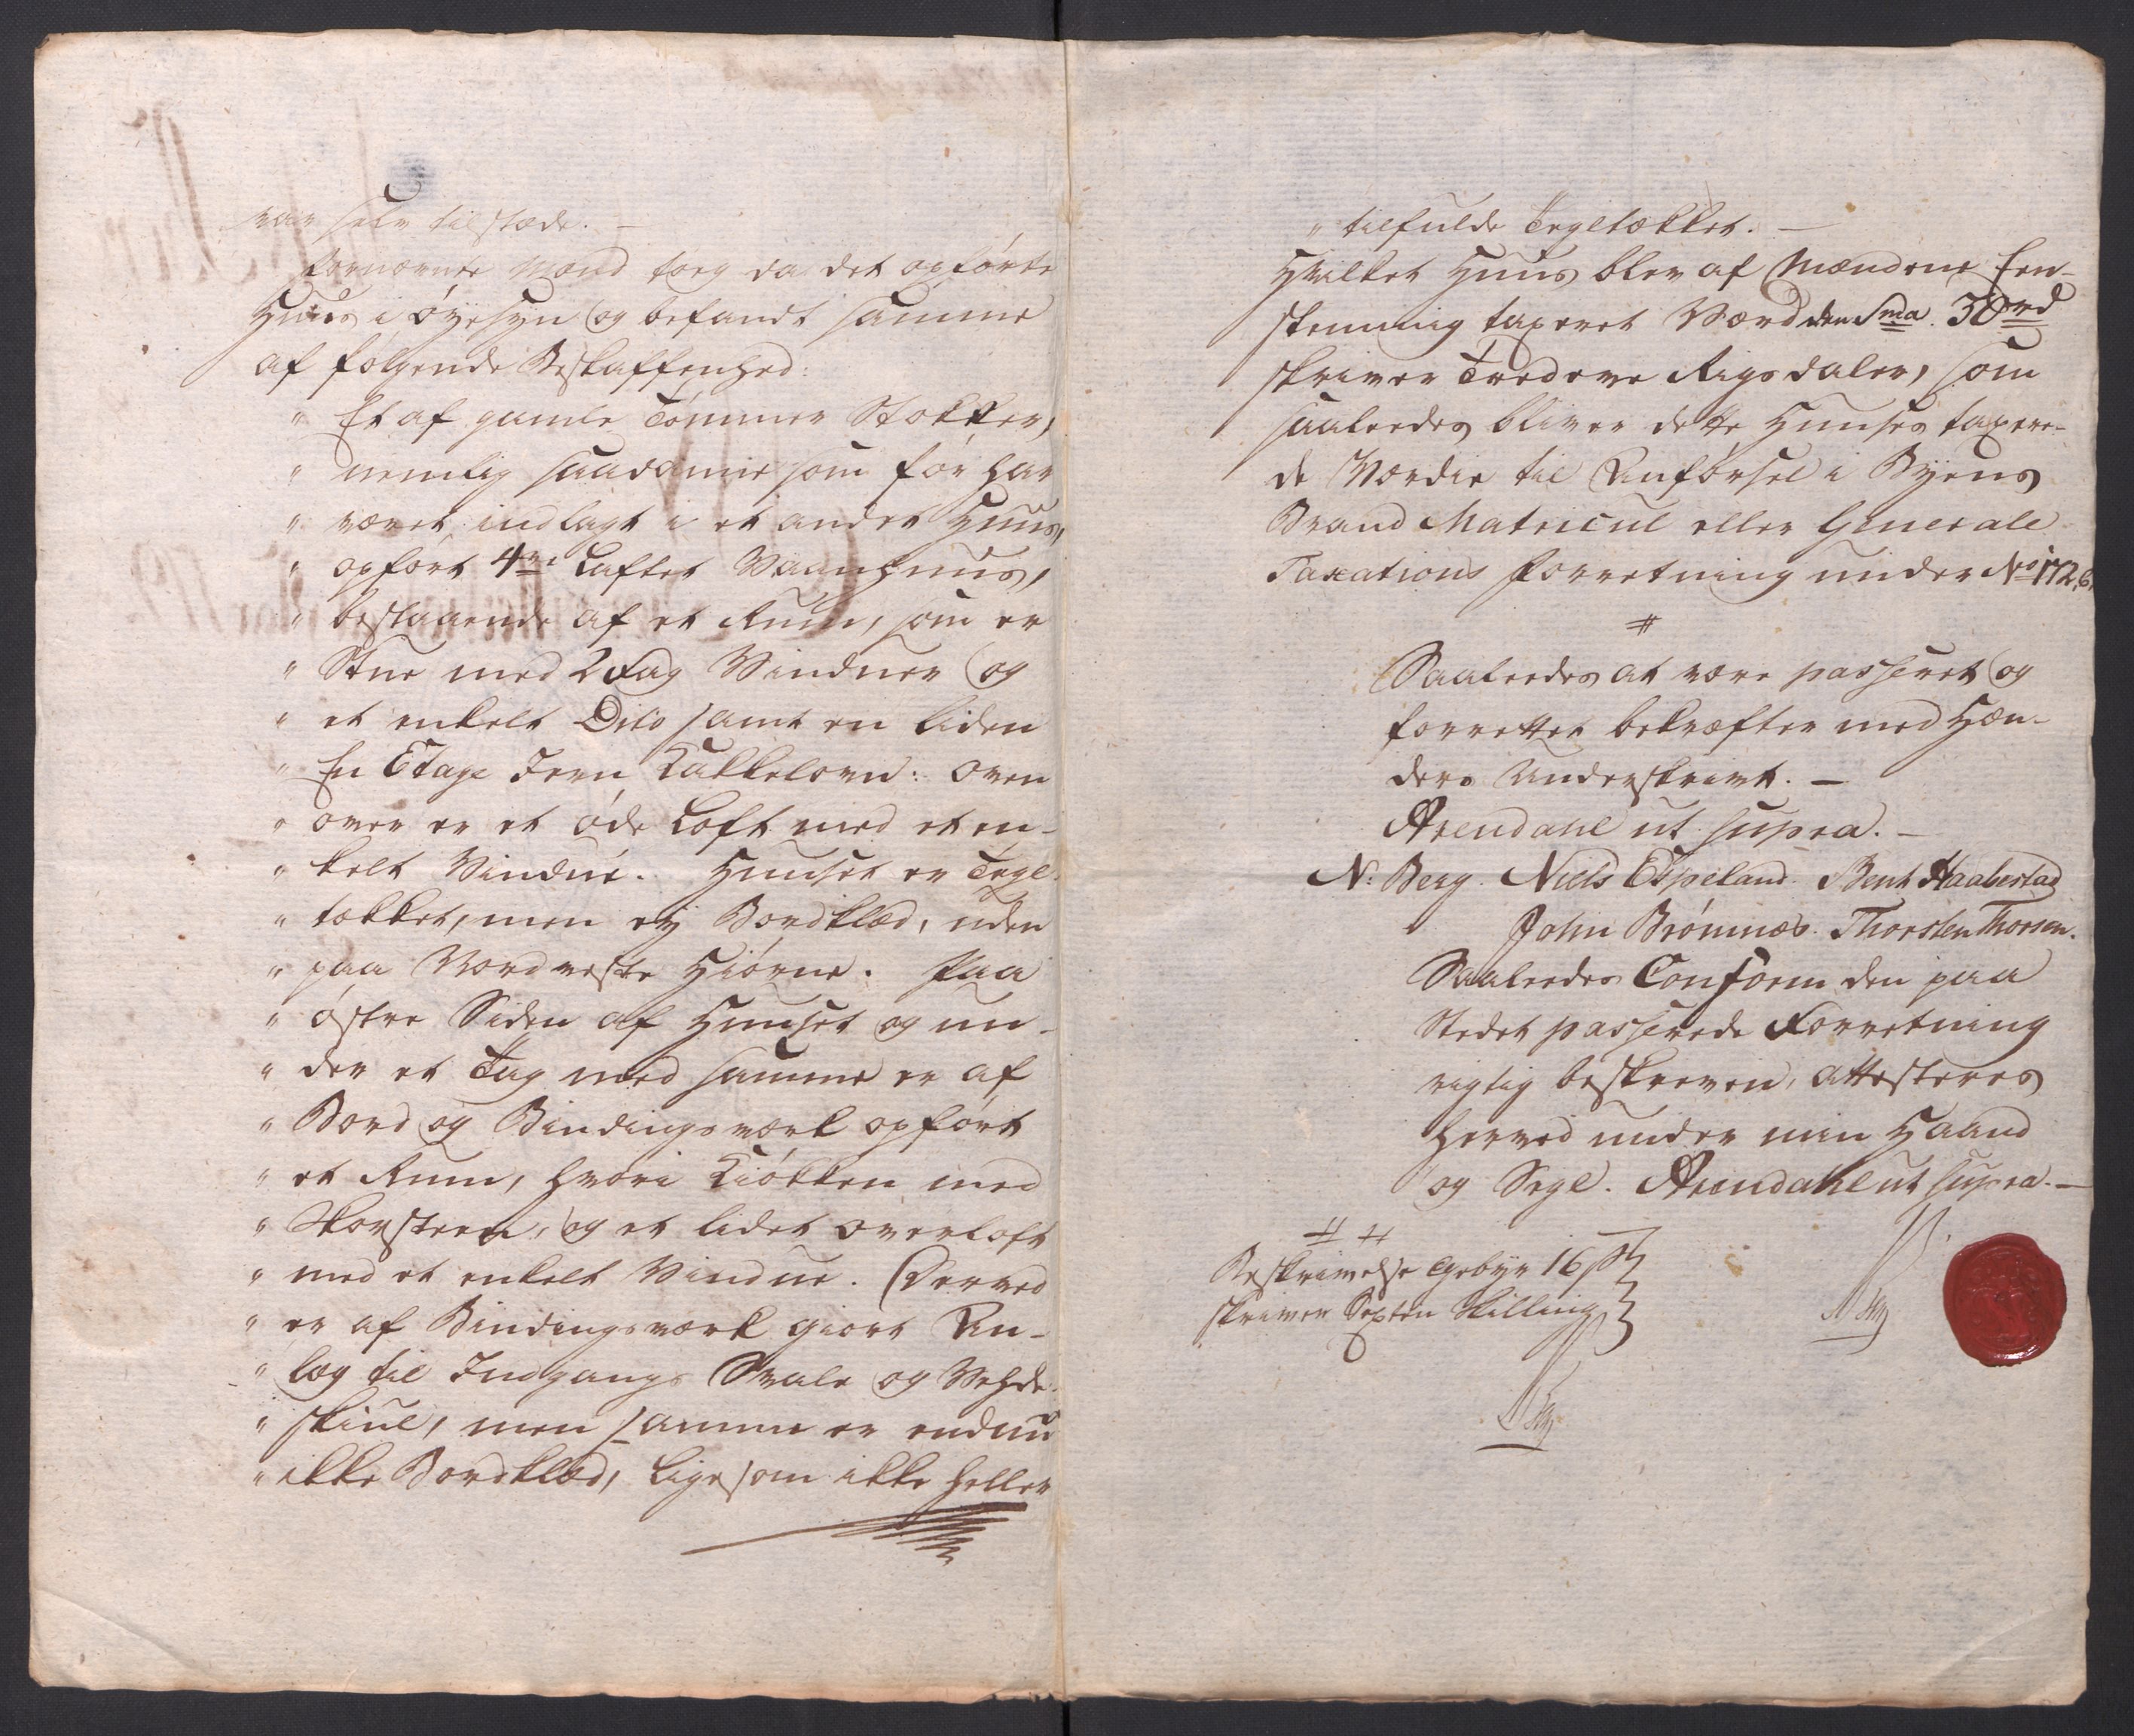 var selv tilstæde. —
Fornævnte Mænd toeg da det opførte
Huus i øyesyn og befandt samme
af følgende Beskaffenhed:
" Et af gamle Tømmer Stokker,
" nemlig saadanne som før har
" været indlagt i et andet Huus,
" opført 4re Laftet Waanhuus,
" bestaaende af et Rum, som er
" Stue med 2 Fag Vinduer og
" et enkelt Dito samt en liden
" En Etage Jern Kakkelovn: Oven
" over er et øde Loft med et en-
" kelt Vindue. Huuset er Tegl-
" tækket, men ey Bordklæd, uden
" paa Nordveste Hiørne. Paa
" østre Siden af Huuset og un-
" der et Tag med samme er af
" Bord og Bindingsværk opført
" et Rum, hvori Kiøkken med
" Skorsteen, og et lidet overloft
" med et enkelt Vindue. Derved
" er af Bindingsværk giort An-
" læg til Indgangs Svale og Wehde-
" skiul, men samme er endnu
" ikke Bordklæd, ligesom ikke heller
" tilfulde Tegltækket. —
Hvilket Huus blev af Mændene Een-
stemmig taxeret Værd den Sma. 30rd
skriver Tredeve Rigsdaler, som
saaleedes bliver dette Huuses taxere-
de Værdie til Anførsel i Byens
Brand Matricul eller Generale
Taxations Forretning under No 172,b,
#
Saaleedes at være passeret og
forrettet bekræfter med Hæn-
ders Underskrivt. —
Arendahl ut supra. —
N: Berg. Niels Espeland. Bent Haabestad
John Brömnæs. Thorsten Thorsen.
Saaleedes Conform den paa
Stedet passerede Forretning
rigtig beskreven, attesteres
herved under min Haand
og Segl. Arendahl ut supra. —
Beskrivelse Gebyr 16 s
skriver Sexten Skilling